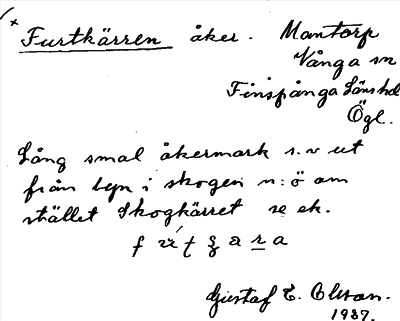 Furtkärren åker. Mantorp
Vånga sn
Finspånga Läns hd
Ögl.
Lång smal åkermark s.v ut
från byn i skogen n:ö om
stället Skogkärret se ek.
Gustaf E. Olsson.
1937.